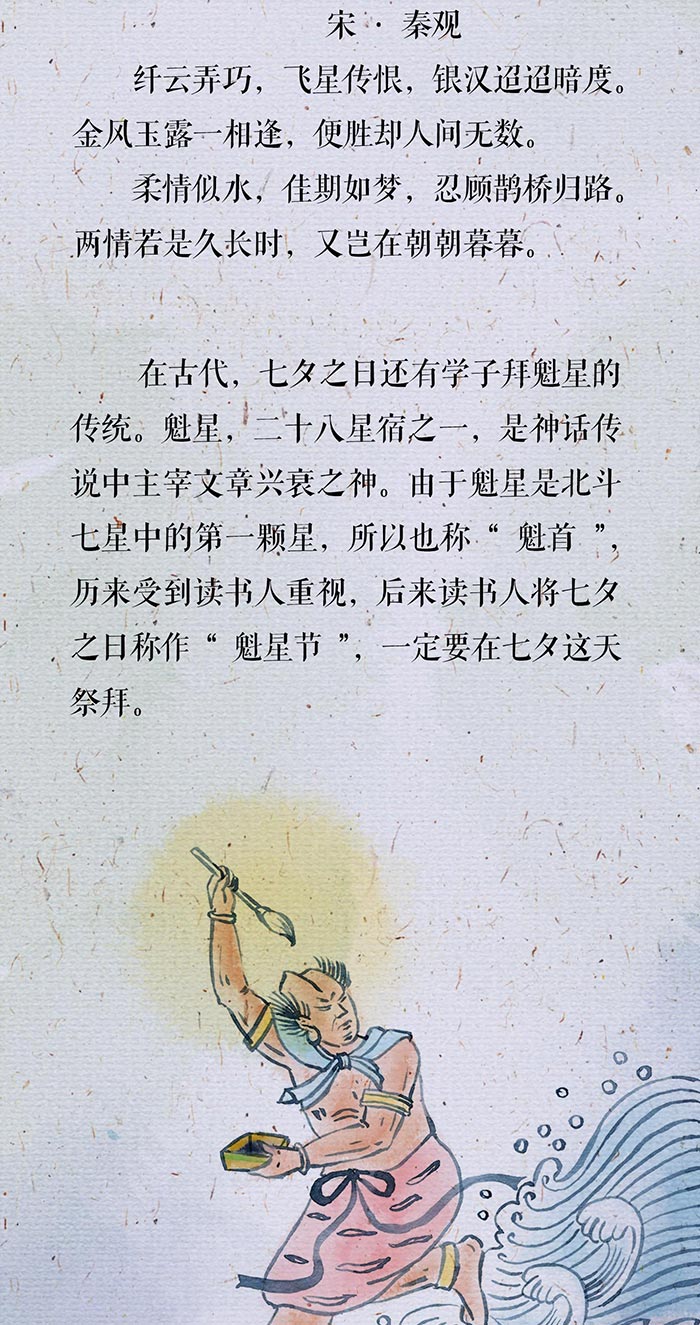 宋 · 秦观
纤云弄巧，飞星传恨，银汉迢迢暗度。
金风玉露一相逢，便胜却人间无数。
柔情似水，佳期如梦，忍顾鹊桥归路。
两情若是久长时，又岂在朝朝暮暮。
在古代，七夕之日还有学子拜魁星的
传统。魁星，二十八星宿之一，是神话传
说中主宰文章兴衰之神。由于魁星是北斗
七星中的第一颗星，所以也称“ 魁首 ”，
历来受到读书人重视，后来读书人将七夕
之日称作“ 魁星节 ”，一定要在七夕这天
祭拜。